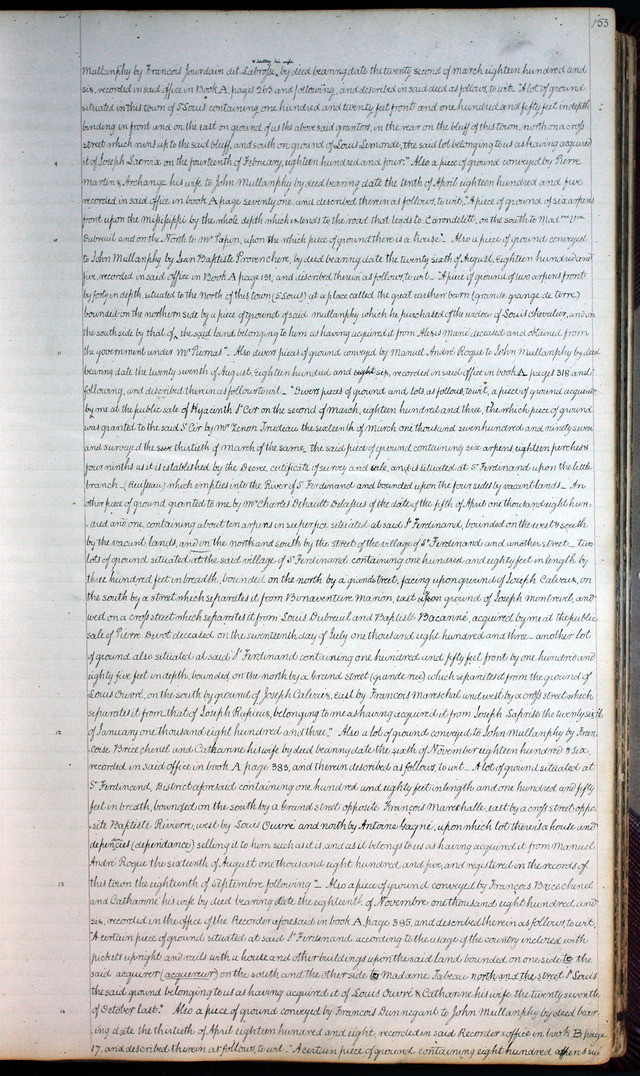 153
& Sally his wife
Mullanphy by Francois Jourdain dit Labrosse, by deed bearing date the twenty second of march eighteen hundred and
six, recorded in said office in Book A, pages 263 and following, and described in said deed as follows, to wit. "A lot of ground
situated in this town of St Louis containing one hundred and twenty feet front and one hundred and fifty feet in depth
bending in front and on the east on ground of us the above said grantors, in the rear on the bluff of this town, north on a cross
street which runs up to the said bluff, and south on ground of Louis Lemonde, the said lot belonging to us as having acquired
it of Joseph Lacroix on the fourteenth of February, eighteen hundred and four." Also a piece of ground conveyed by Pierre
Martin & Archange his wife to John Mullanphy by deed bearing date the tenth of April eighteen hundred and five
recorded in said office in book A page seventy one, and described therein as follows, to wit "A piece of ground of six arpens
front upon the Mississippi by the whole depth which extends to the road that leads to Carondelett, on the south to Madme Vve
Dubreuil and on the North to Mr Papin, upon the which piece of ground there is a house". Also a piece of ground conveyed
to John Mullanphy by Jean Baptiste Provenchere, by deed bearing date the twenty sixth of August, Eighteen hundred and
five, recorded in said office in Book A page 191, and described therein as follows, to wit "A piece of ground of two arpens front
by forty in depth, situated to the North of this town (St Louis) at a place called the great earthen barn (grande grange de terre)
bounded on the northern side by a piece of ground of said mullanphy which he purchased of the widow of Louis chevalier, and on
the south side by that of, the said land belonging to him as having acquired from Alexis Marié deceased and obtained from
the government under Mr Piernas". Also divers pieces of ground conveyed by Manuel André Roque to John Mullanphy by deed
11
bearing date the twenty seventh of August, Eighteen hundred and eight six, recorded in said office in book A pages 318 and
following, and described therein as follows to wit "Divers pieces of ground and lots, as follows, to wit, a piece of ground acquired
by me at the public sale of Hyacinth St Cir on the second of March, eighteen hundred and three, the which piece of ground
was granted to the said St Cir by Mr Zenon Trudeau the sixteenth of march one thousand seven hundred and ninety seven
and surveyed the six thirtieth of march of the same, the said piece of ground containing six arpens eighteen perches &
four ninths as it is established by the Decree, certificate of survey and sale, and is situated at St Ferdinand upon the little
branch (Ruisseau) which empties into the River of St Ferdinand and bounded upon the four sides by vacant lands. An
other piece of ground granted to me by Mr Charles Dehault Delassus of the date of the fifth of April one thousand eight hun-
dred and one, containing about ten arpens in superfice, situated at said St Ferdinand, bounded on the west & south
by the vacant lands, and in the north and south by the street of the village of St Ferdinand and another street. two
lots of ground situated at the said village of St Ferdinand containing one hundred and eighty feet in length by
three hundred feet in breadth, bounded on the north by a grand street, facing upon ground of Joseph Calveux, on
the south by a street which separates it from Bonaventure Marion, east upon ground of Joseph Montreuil, and
west on a cross street which separates it from Louis Dubreuil and Baptiste Bacanné, acquired by me at the public
sale of Pierre Devot deceased on the seventeenth day of July one thousand eight hundred and three. another lot
of ground also situated at said St Ferdinand containing one hundred and fifty feet front by one hundred and
eighty five feet in depth, bounded on the north by a Grand street (grande rue) which separates it from the ground of
Louis Ouvré, on the south by ground of Joseph Calveux, east by Francois Mareschal and west by a cross street which
separates it from that of Joseph Rapieux, belonging to me as having acquired it from Joseph Laprite the twenty sixth
of January one thousand eight hundred and three." Also a lot of ground conveyed to John Mullanphy by Fran
12
coise Brice chenel and Catharine his wife by deed bearing date the sixth of November eighteen hundred & six,
recorded in said office in book A page 383, and therein described as follows, to wit. A lot of ground situated at
St Ferdinand, District aforsaid containing one hundred and eighty feet in length and one hundred and fifty
feet in breath, bounded on the south by a Grand street opposite François Mareshalle, east by a cross street oppo-
site Baptiste Rivierre, west by Louis Ouvré and north by Antoine Gagné, upon which lot there is a house and
dependencies (dependance) selling it to him such as it is, and as it belongs to us as having acquired it from Manuel
André Roque the sixteenth of August one thousand eight hundred and five, and registered in the records of
this town the eighteenth of Septembre following" Also a piece of ground conveyed by François Brice chenel
13
and Catharine his wife by deed bearing date the eighteenth of Novembre one thousand eight hundred and
six, recorded in the office of the Recorder aforesaid in book A, page 385, and described therein as follows, to wit,
"A certain piece of ground situated at said St Ferdinand according to the usage of the country inclosed with
pickets upright and rails with a house and other buildings upon the said land bounded on one side to the
said acquirer (acquereur) on the south and the other side to Madame Tabeau north and the street St Louis
the said ground belonging to us as having acquired it of Louis Ouvré & Catharine his wife the twenty seventh
of October last." Also a piece of ground conveyed by Francois Dunnegant to John Mullanphy by deed bear
14
ing date the thirtieth of April eighteen hundred and eight, recorded in said Recorders office in book B page
17, and described therein as follows, to wit "A certain piece of ground containing eight hundred arpens six